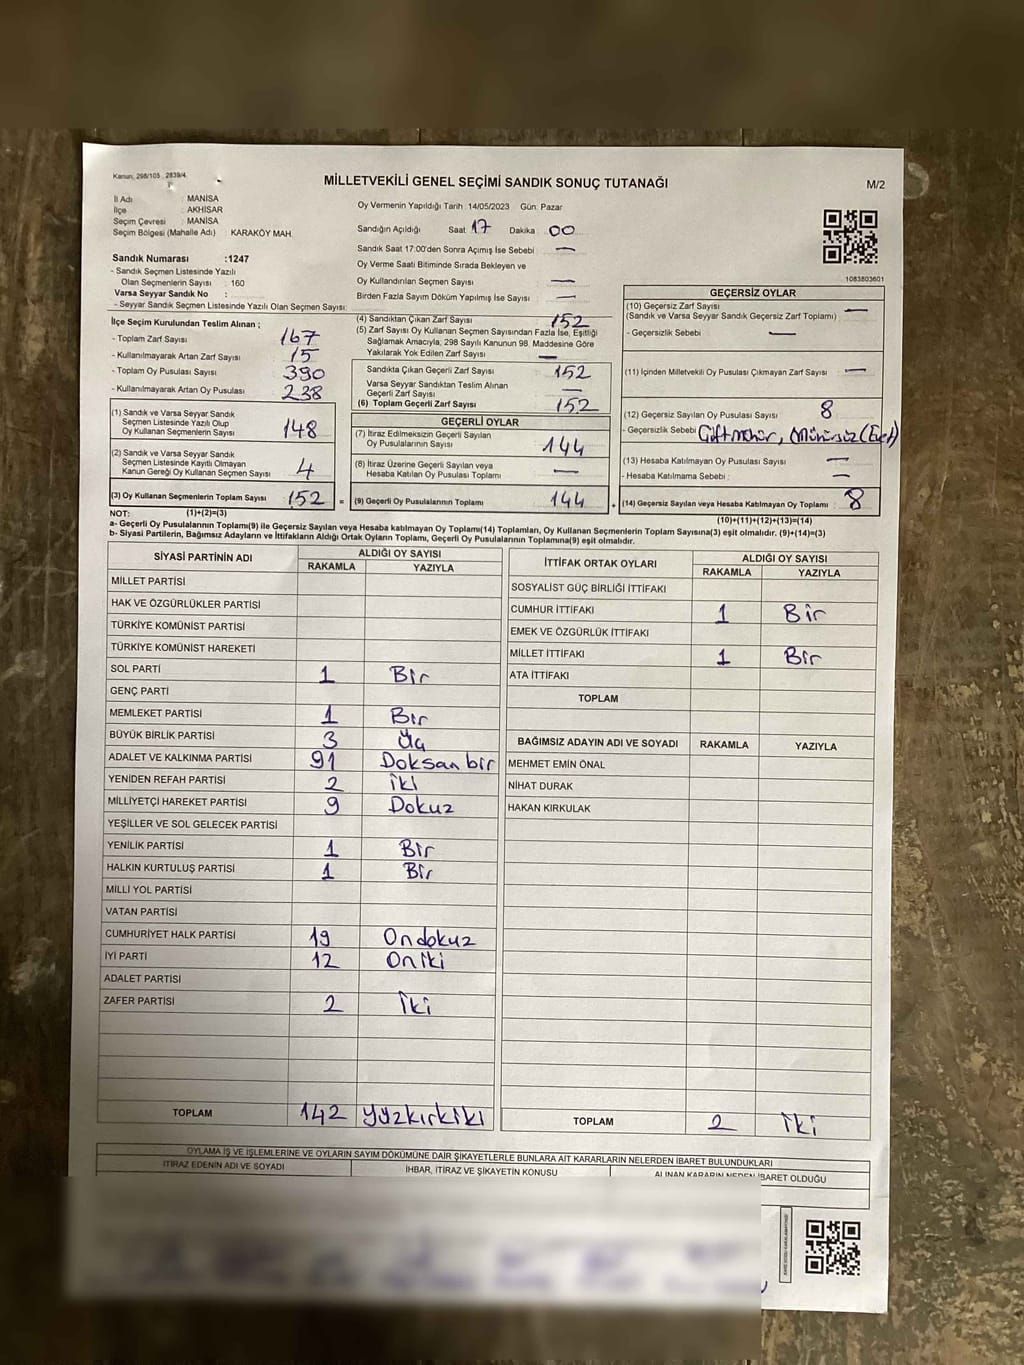 Kanun, 298/105 2839/4
MİLLETVEKİLİ GENEL SEÇİMİ SANDIK SONUÇ TUTANAĞI
M/2
İl Adı : MANİSA
İlçe : AKHİSAR
Seçim Çevresi : MANİSA
Seçim Bölgesi (Mahalle Adı) : KARAKÖY MAH.
Sandık Numarası :1247
- Sandık Seçmen Listesinde Yazılı
Olan Seçmenlerin Sayısı : 160
Varsa Seyyar Sandık No :
- Seyyar Sandık Seçmen Listesinde Yazılı Olan Seçmen Sayısı:
Oy Vermenin Yapıldığı Tarih : 14/05/2023 Gün: Pazar
Sandığın Açıldığı Saat 17 Dakika 00
Sandık Saat 17:00'den Sonra Açımış İse Sebebi : —
Oy Verme Saati Bitiminde Sırada Bekleyen ve
Oy Kullandırılan Seçmen Sayısı : —
Birden Fazla Sayım Döküm Yapılmış İse Sayısı : —
1083803601
İlçe Seçim Kurulundan Teslim Alınan ;
- Toplam Zarf Sayısı : 167
- Kullanılmayarak Artan Zarf Sayısı : 15
- Toplam Oy Pusulası Sayısı : 390
- Kullanılmayarak Artan Oy Pusulası : 238
(1) Sandık ve Varsa Seyyar Sandık
Seçmen Listesinde Yazılı Olup
Oy Kullanan Seçmenlerin Sayısı : 148
(2) Sandık ve Varsa Seyyar Sandık
Seçmen Listesinde Kayıtlı Olmayan
Kanun Gereği Oy Kullanan Seçmen Sayısı : 4
(3) Oy Kullanan Seçmenlerin Toplam Sayısı : 152
(4) Sandıktan Çıkan Zarf Sayısı : 152
(5) Zarf Sayısı Oy Kullanan Seçmen Sayısından Fazla İse, Eşitliği
Sağlamak Amacıyla, 298 Sayılı Kanunun 98. Maddesine Göre
Yakılarak Yok Edilen Zarf Sayısı : —
Sandıkta Çıkan Geçerli Zarf Sayısı : 152
Varsa Seyyar Sandıktan Teslim Alınan
Geçerli Zarf Sayısı : —
(6) Toplam Geçerli Zarf Sayısı : 152
GEÇERLİ OYLAR
(7) İtiraz Edilmeksizin Geçerli Sayılan
Oy Pusulalarının Sayısı : 144
(8) İtiraz Üzerine Geçerli Sayılan veya
Hesaba Katılan Oy Pusulası Toplamı : —
= (9) Geçerli Oy Pusulalarının Toplamı : 144
GEÇERSİZ OYLAR
(10) Geçersiz Zarf Sayısı : —
(Sandık ve Varsa Seyyar Sandık Geçersiz Zarf Toplamı)
- Geçersizlik Sebebi : —
(11) İçinden Milletvekili Oy Pusulası Çıkmayan Zarf Sayısı : —
(12) Geçersiz Sayılan Oy Pusulası Sayısı : 8
- Geçersizlik Sebebi : Çift mühür, Mühürsüz
(13) Hesaba Katılmayan Oy Pusulası Sayısı : —
- Hesaba Katılmama Sebebi : —
+ (14) Geçersiz Sayılan veya Hesaba Katılmayan Oy Toplamı : 8
NOT: (1)+(2)=(3)
(10)+(11)+(12)+(13)=(14)
a- Geçerli Oy Pusulalarının Toplamı(9) ile Geçersiz Sayılan veya Hesaba katılmayan Oy Toplamı(14) Toplamları, Oy Kullanan Seçmenlerin Toplam Sayısına(3) eşit olmalıdır. (9)+(14)=(3)
b- Siyasi Partilerin, Bağımsız Adayların ve İttifakların Aldığı Ortak Oyların Toplamı, Geçerli Oy Pusulalarının Toplamına(9) eşit olmalıdır.
SİYASİ PARTİNİN ADI ALDIĞI OY SAYISI
RAKAMLA YAZIYLA
MİLLET PARTİSİ
HAK VE ÖZGÜRLÜKLER PARTİSİ
TÜRKİYE KOMÜNİST PARTİSİ
TÜRKİYE KOMÜNİST HAREKETİ
SOL PARTİ 1 Bir
GENÇ PARTİ
MEMLEKET PARTİSİ 1 Bir
BÜYÜK BİRLİK PARTİSİ 3 Üç
ADALET VE KALKINMA PARTİSİ 91 Doksan bir
YENİDEN REFAH PARTİSİ 2 İki
MİLLİYETÇİ HAREKET PARTİSİ 9 Dokuz
YEŞİLLER VE SOL GELECEK PARTİSİ
YENİLİK PARTİSİ 1 Bir
HALKIN KURTULUŞ PARTİSİ 1 Bir
MİLLİ YOL PARTİSİ
VATAN PARTİSİ
CUMHURİYET HALK PARTİSİ 19 Ondokuz
İYİ PARTİ 12 Oniki
ADALET PARTİSİ
ZAFER PARTİSİ 2 İki
TOPLAM 142 Yüzkırkiki
İTTİFAK ORTAK OYLARI ALDIĞI OY SAYISI
RAKAMLA YAZIYLA
SOSYALİST GÜÇ BİRLİĞİ İTTİFAKI
CUMHUR İTTİFAKI 1 Bir
EMEK VE ÖZGÜRLÜK İTTİFAKI
MİLLET İTTİFAKI 1 Bir
ATA İTTİFAKI
TOPLAM
BAĞIMSIZ ADAYIN ADI VE SOYADI RAKAMLA YAZIYLA
MEHMET EMİN ÖNAL
NİHAT DURAK
HAKAN KIRKULAK
TOPLAM 2 İki
OYLAMA İŞ VE İŞLEMLERİNE VE OYLARIN SAYIM DÖKÜMÜNE DAİR ŞİKAYETLERLE BUNLARA AİT KARARLARIN NELERDEN İBARET BULUNDUKLARI
İTİRAZ EDENİN ADI VE SOYADI İHBAR, İTİRAZ VE ŞİKAYETİN KONUSU ALINAN KARARIN NEDEN İBARET OLDUĞU